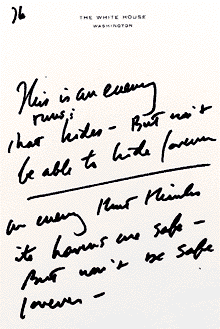 76
THE WHITE HOUSE
WASHINGTON
This is an enemy
runs;
that hides - But won't
be able to hide forever
an enemy that thinks
its havens are safe -
But won't be safe
forever -